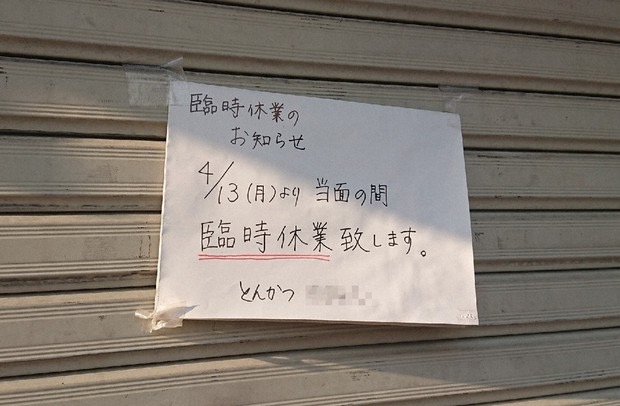 臨時休業の
お知らせ
4/13(月)より 当面の間
臨時休業致します。
とんかつ